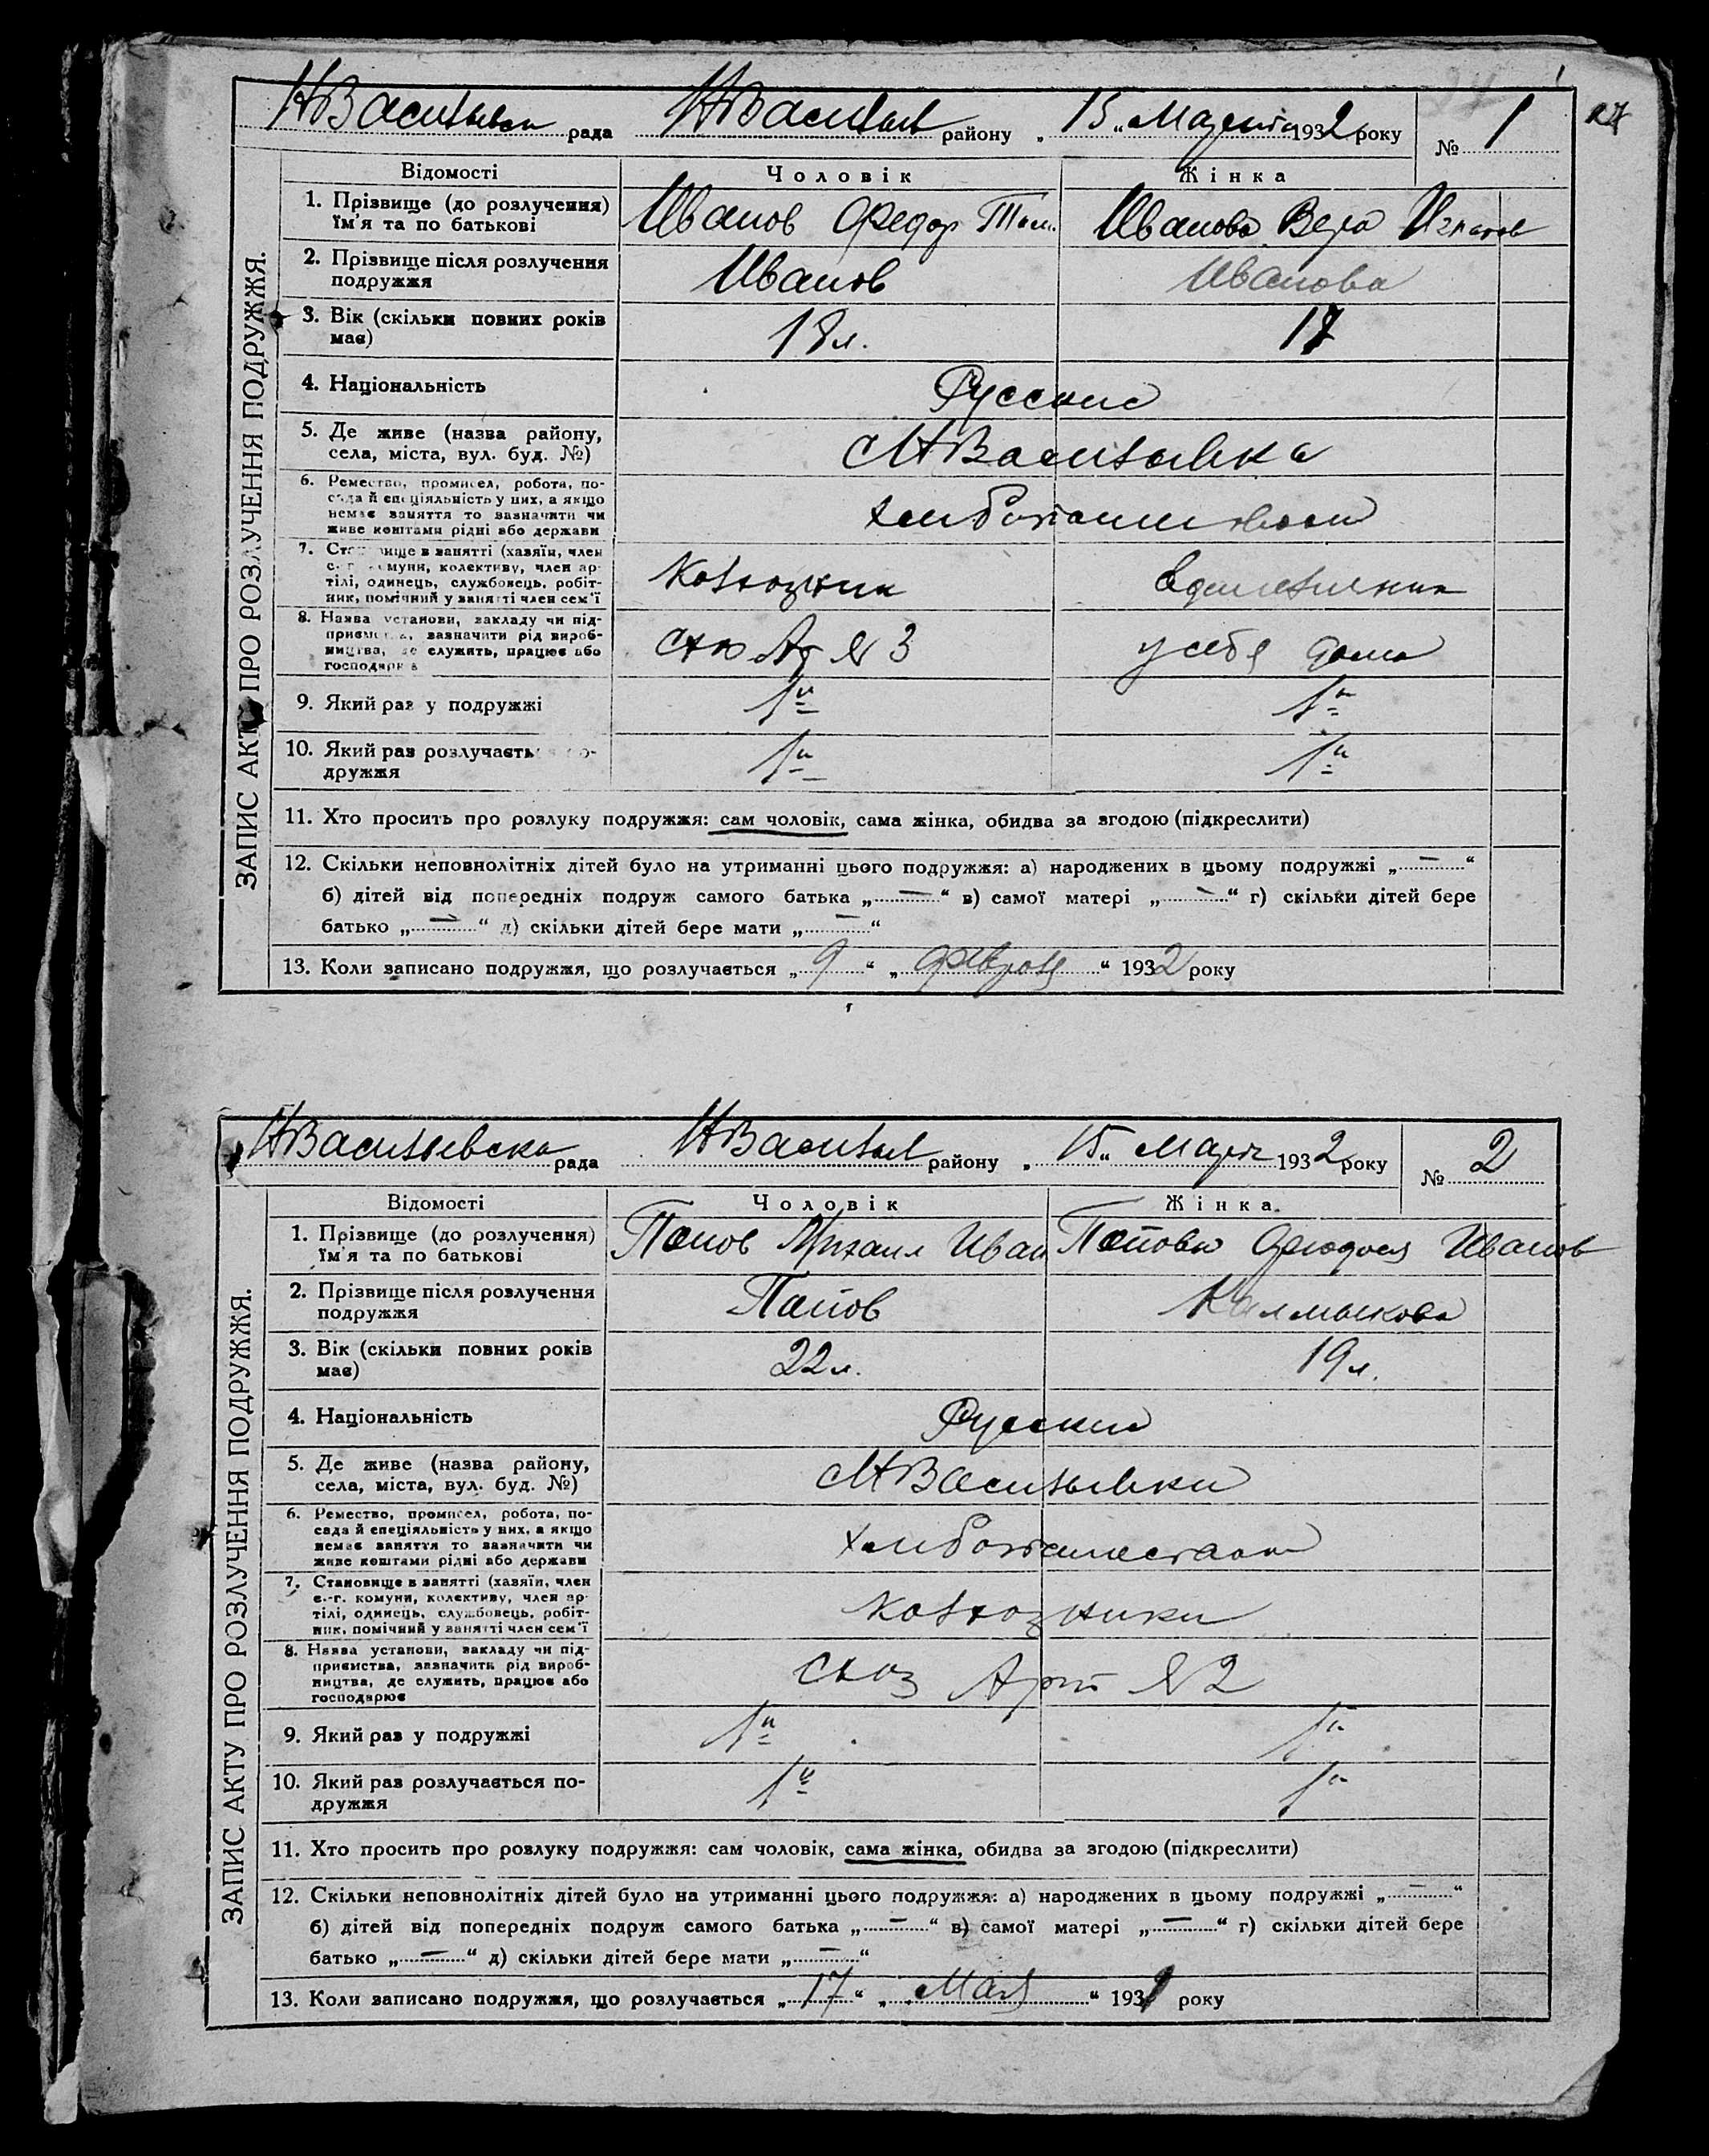 НВасильевск рада НВасильев району „ 15 „ Марта 1932 року № 1
27
ЗАПИС АКТУ ПРО РОЗЛУЧЕННЯ ПОДРУЖЖЯ.
Відомості Чоловік Жінка
1. Прізвище (до розлучення) Иванов Федор Иванова Вера Игнатов
їм'я та по батькові
2. Прізвище після розлучення Иванов Иванова
подружжя
3. Вік (скільки повних років 18 л. 17
має)
4. Національність Русские
5. Де живе (назва району, НВасильевка
села, міста, вул. буд. №)
6. Ремество, промисел, робота, по-
сада й спеціяльність у них, а якщо
немає заняття то зазначити чи
живе коштами рідні або держави
7. Становище в занятті (хазяїн, член
с.-г. комуни, колективу, член ар-
тілі, одинець, службовець, робіт- Колхозник Единоличник
ник, помічний у занятті член сем'ї
8. Назва установи, закладу чи під-
приємства, зазначити рід вироб-
ництва, де служить, працює або № 3 у себя дома
господарює
9. Який раз у подружжі 1й 1й
10. Який раз розлучається по- 1й 1й
дружжя
11. Хто просить про розлуку подружжя: сам чоловік, сама жінка, обидва за згодою (підкреслити)
12. Скільки неповнолітніх дітей було на утриманні цього подружжя: а) народжених в цьому подружжі „ — “
б) дітей від попередніх подруж самого батька „ — “ в) самої матері „ — “ г) скільки дітей бере
батько „ — “ д) скільки дітей бере мати „ — “
13. Коли записано подружжя, що розлучається „ 9 “ „ Февраля “ 1932 року
НВасильевска рада НВасильев району „ 15 „ Марта 1932 року № 2
ЗАПИС АКТУ ПРО РОЗЛУЧЕННЯ ПОДРУЖЖЯ.
Відомості Чоловік Жінка
1. Прізвище (до розлучення) Попов Михаил Иван Попова Феодосия Иванов
їм'я та по батькові
2. Прізвище після розлучення Попов Калмыкова
подружжя
3. Вік (скільки повних років 22 л. 19 л.
має)
4. Національність Русские
5. Де живе (назва району, НВасильевки
села, міста, вул. буд. №)
6. Ремество, промисел, робота, по-
сада й спеціяльність у них, а якщо
немає заняття то зазначити чи
живе коштами рідні або держави
7. Становище в занятті (хазяїн, член
с.-г. комуни, колективу, член ар-
тілі, одинець, службовець, робіт- колхозники
ник, помічний у занятті член сем'ї
8. Назва установи, закладу чи під-
приємства, зазначить рід вироб-
ництва, де служить, працює або Арт № 2
господарює
9. Який раз у подружжі 1й 1й
10. Який раз розлучається по- 1й 1й
дружжя
11. Хто просить про розлуку подружжя: сам чоловік, сама жінка, обидва за згодою (підкреслити)
12. Скільки неповнолітніх дітей було на утриманні цього подружжя: а) народжених в цьому подружжі „ — “
б) дітей від попередніх подруж самого батька „ — “ в) самої матері „ — “ г) скільки дітей бере
батько „ — “ д) скільки дітей бере мати „ — “
13. Коли записано подружжя, що розлучається „ 17 “ „ Мая “ 1931 року